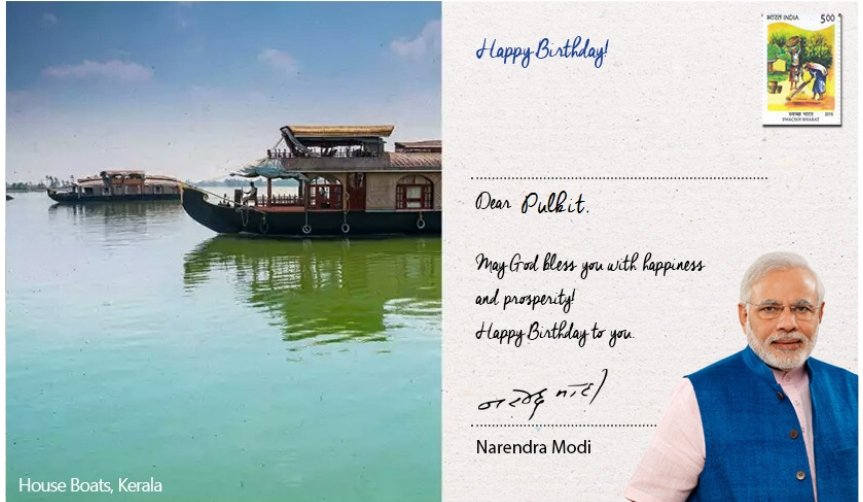 Happy Birthday!
भारत INDIA 5.00
स्वच्छ भारत
SWACHH BHARAT
Dear Pulkit.
May God bless you with happiness
and prosperity!
Happy Birthday to you.
नरेन्द्र मोदी
Narendra Modi
House Boats, Kerala